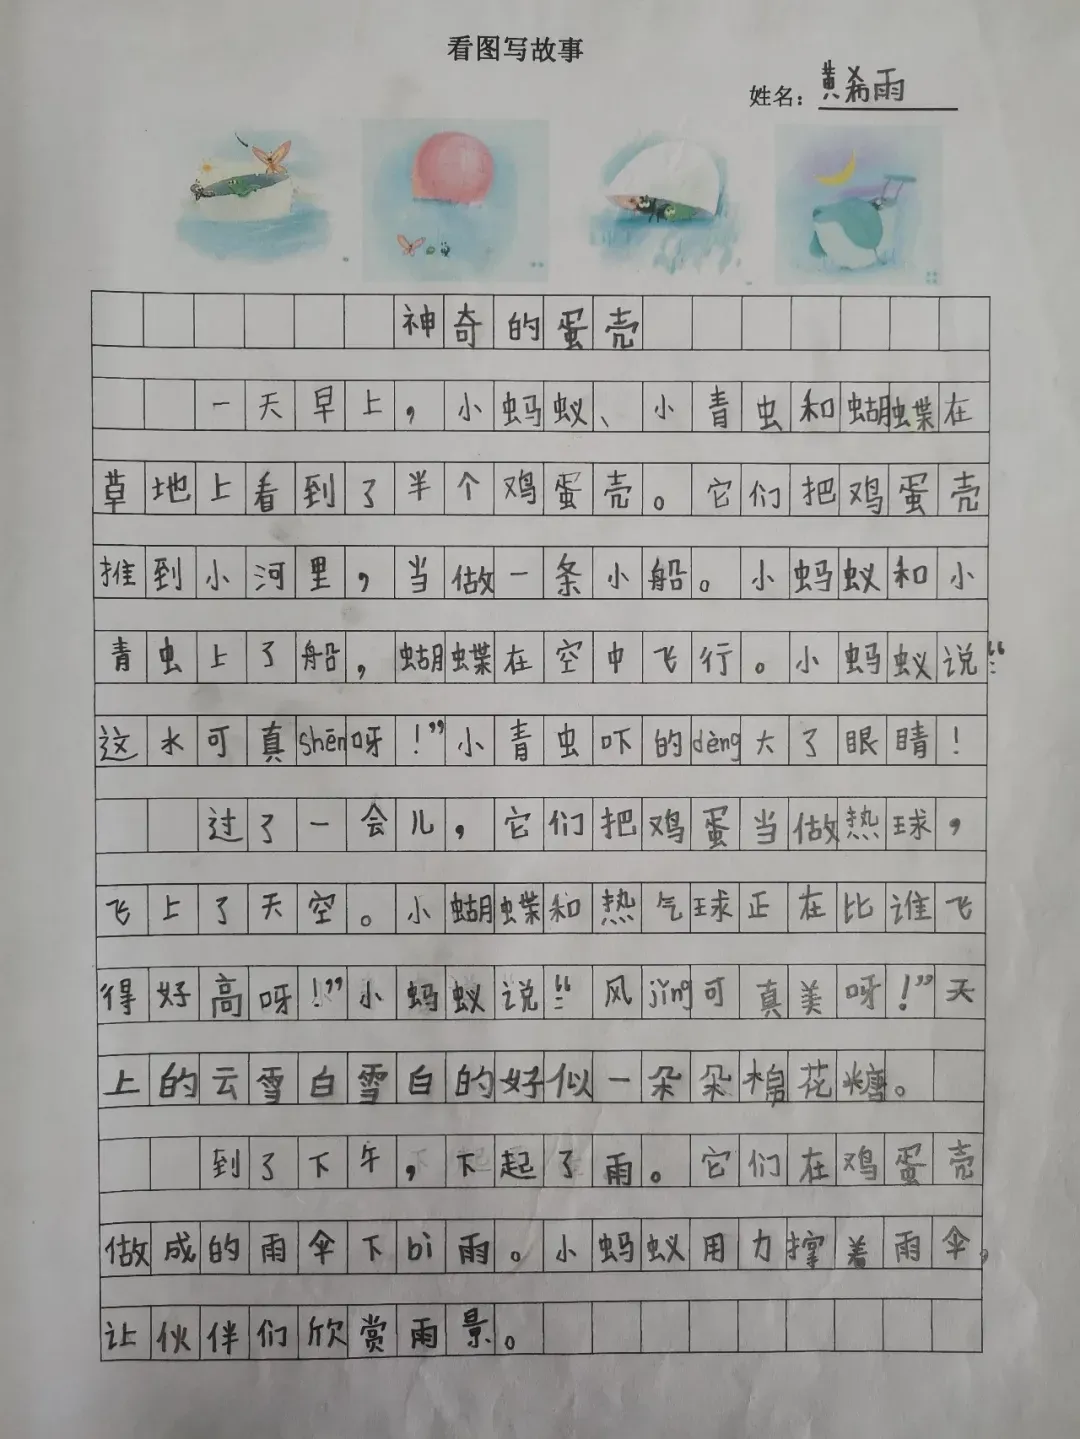 看图写故事
姓名：黄希雨
神奇的蛋壳
一天早上，小蚂蚁、小青虫和蝴蝶在
草地上看到了半个鸡蛋壳。它们把鸡蛋壳
推到小河里，当做一条小船。小蚂蚁和小
青虫上了船，蝴蝶在空中飞行。小蚂蚁说：“
这水可真shēn呀！”小青虫吓的dèng大了眼睛！
过了一会儿，它们把鸡蛋当做热球，
飞上了天空。小蝴蝶和热气球正在比谁飞
得好高呀！”小蚂蚁说：“风jǐng可真美呀！”天
上的云雪白雪白的好似一朵朵棉花糖。
到了下午，下起了雨。它们在鸡蛋壳
做成的雨伞下bì雨。小蚂蚁用力撑着雨伞，
让伙伴们欣赏雨景。